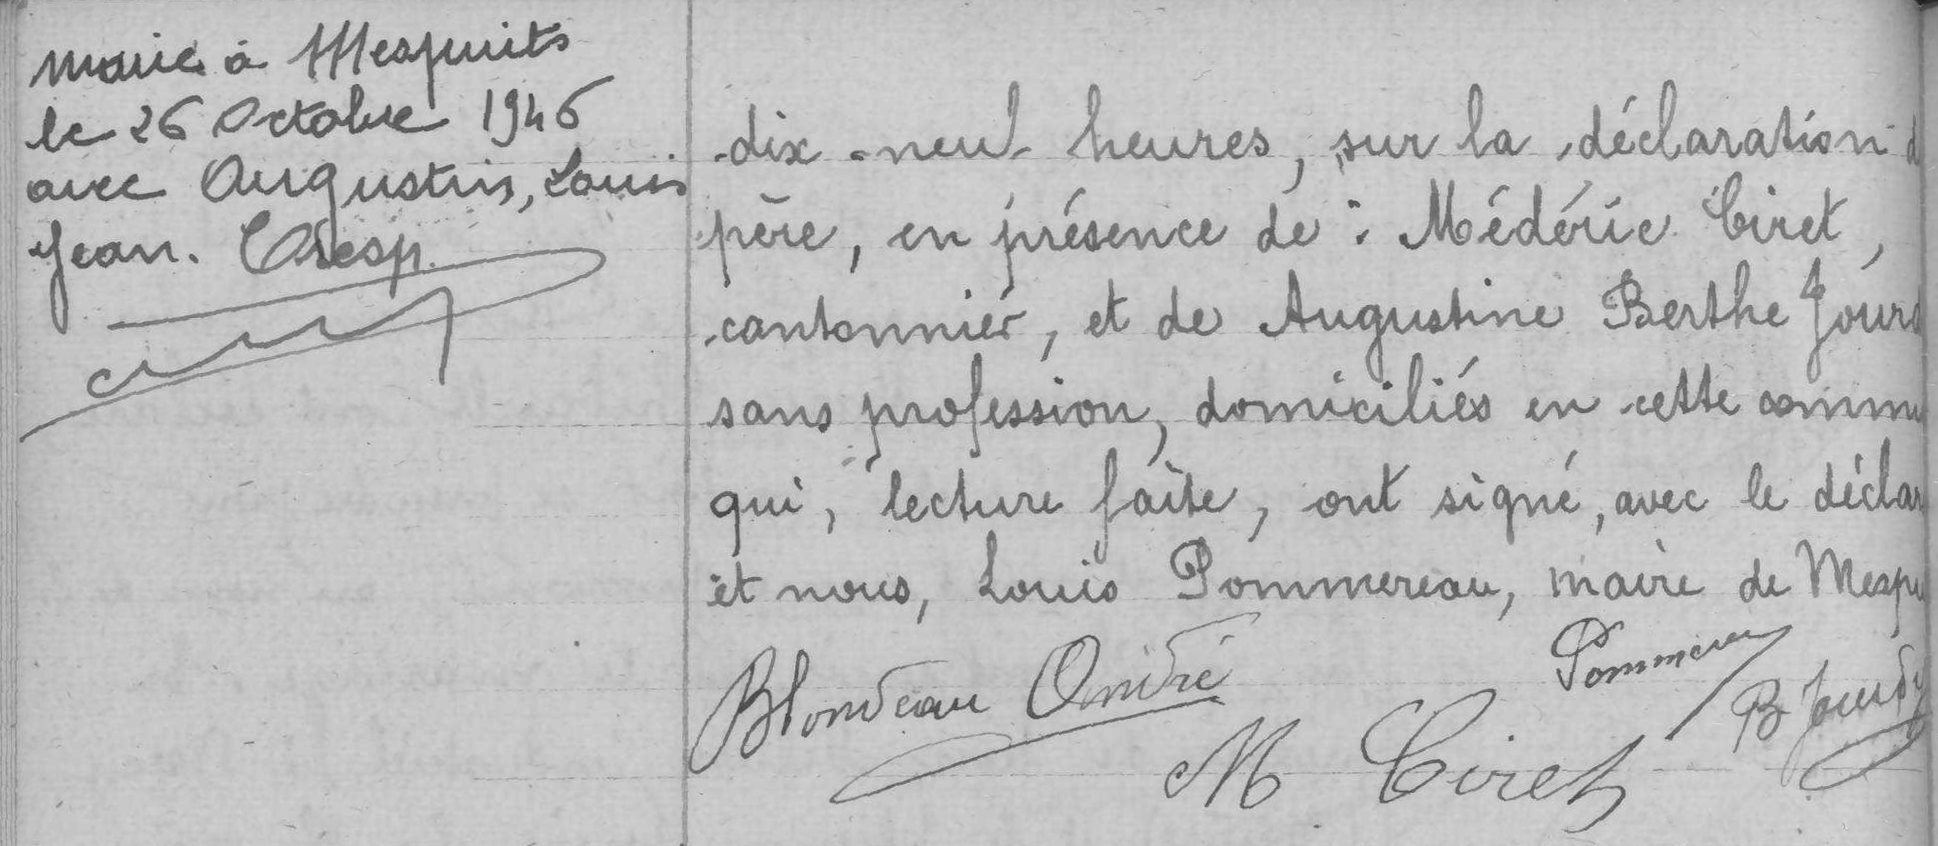 Mariée à Mespuits
le 26 Octobre 1946
avec Augustin, Louis
Jean. Cresp.
dix-neuf heures, sur la déclaration d
père, en présence de : Médéric Ciret,
cantonnier, et de Augustine Berthe Jourd
sans profession, domiciliés en cette commu
qui, lecture faite, ont signé, avec le déclar
et nous, Louis Pommereau, maire de Mespu
Blondeau André
Pommereau
B Jourdy
M Ciret